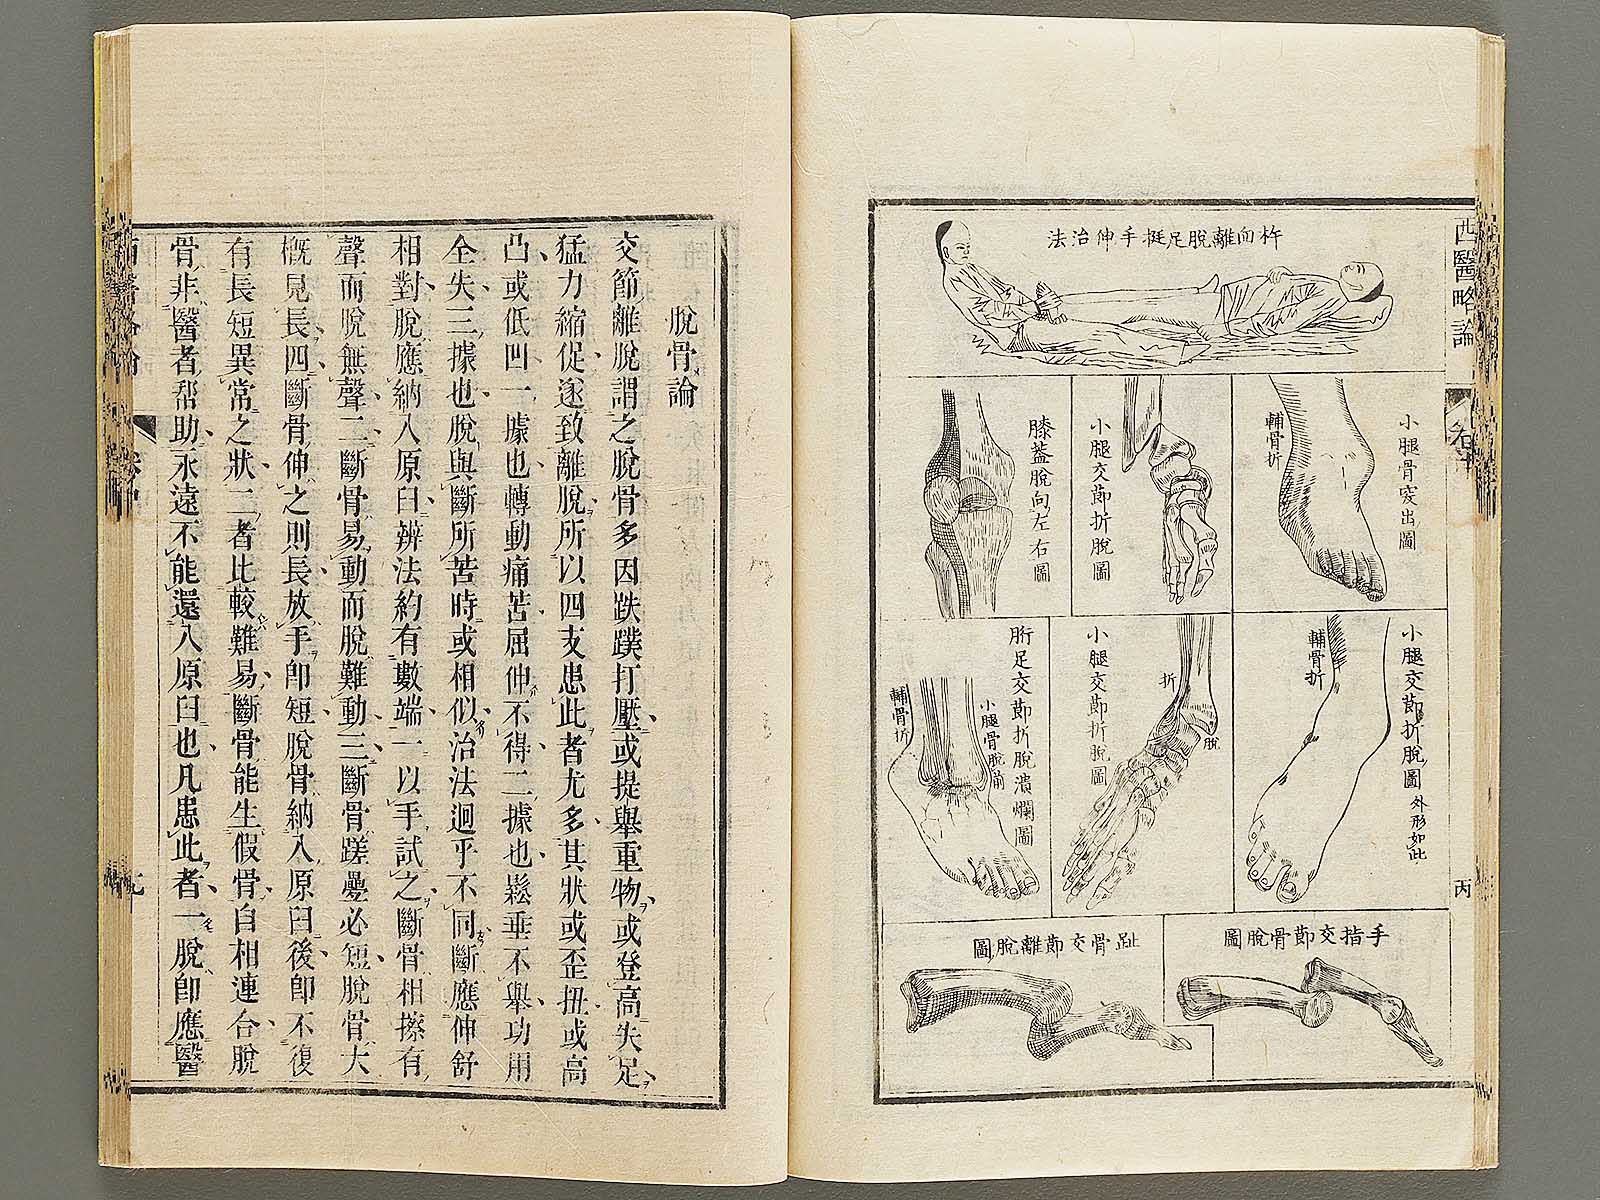 西醫略論
丙
杵向離脫足挺手伸治法
小腿骨突出圖
輔骨折
小腿交節折脫圖
膝蓋脫向左右圖
小腿交節折脫圖 外形如此
輔骨折
小腿交節折脫圖
折
脫
胻足交節折脫潰爛圖
小腿骨脫前
輔骨折
手指交節骨脫圖
趾骨交節離脫圖
脫骨論
交節離脫謂之脫骨多因跌蹼打壓或提舉重物或登高失足
猛力縮促遂致離脫所以四支患此者尤多其狀或歪扭或高
凸或低凹一據也轉動痛苦屈伸不得二據也鬆垂不舉功用
全失三據也脫與斷所苦時或相似治法迥乎不同斷應伸舒
相對脫應納入原臼辨法約有數端一以手試之斷骨相擦有
聲而脫無聲二斷骨易動而脫難動三斷骨蹉疊必短脫骨大
概見長四斷骨伸之則長放手卽短脫骨納入原臼後卽不復
有長短異常之狀二者比較難易斷骨能生假骨自相連合脫
骨非醫者幫助永遠不能還入原臼也凡患此者一脫卽應醫